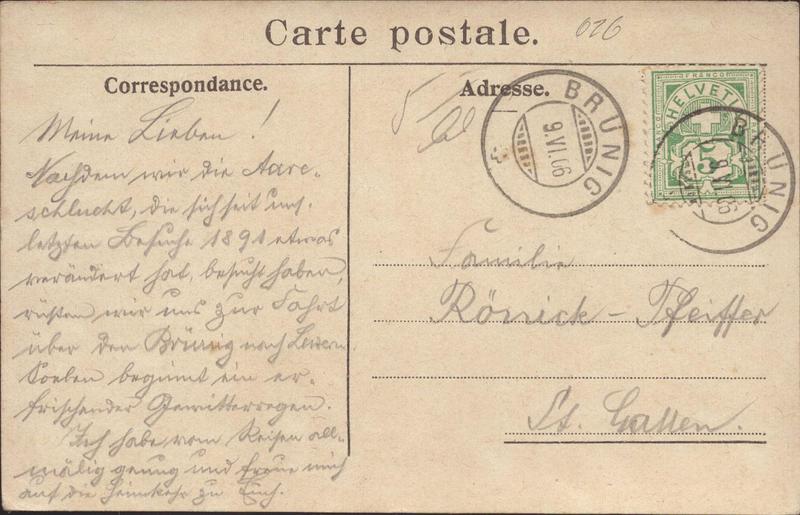 Carte postale.
026
Correspondance.
Adresse.
BRÜNIG
9.VI.06
FRANCO
HELVETIA
5
BRÜNIG
9.VI.06
Meine Lieben!
Nachdem wir die Aare-
schlucht, die sich seit uns.
letzten Besuche 1891 etwas
verändert hat, besucht haben,
rüsten wir uns zur Fahrt
über den Brünig nach Luzern.
Soeben beginnt ein er-
frischender Gewitterregen.
Ich habe vom Reisen all-
mälig genug und freue mich
auf die Heimkehr zu Euch.
Familie
Pfeiffer
St. Gallen.